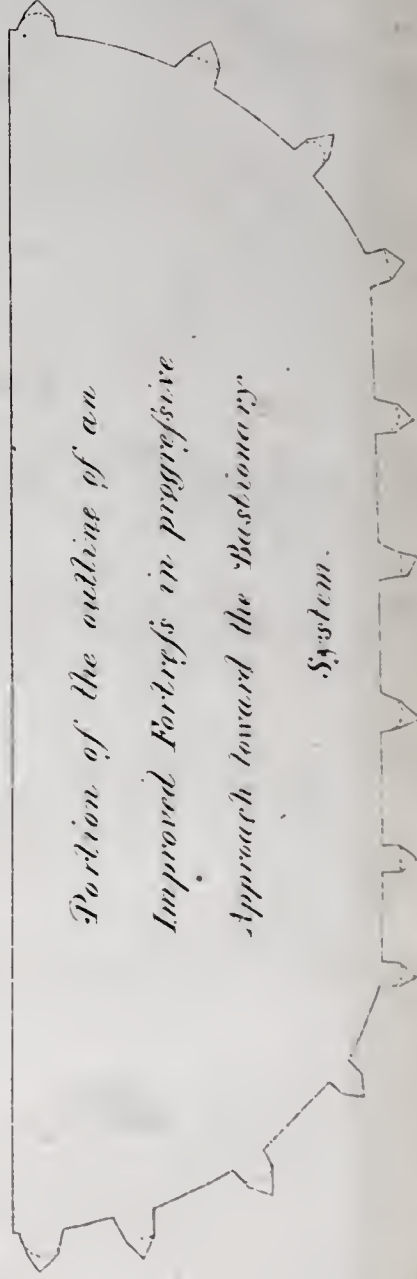 Portion of the outline of an
Improved Fortreſs in progreſsive
Approach toward the Bastionary
System.